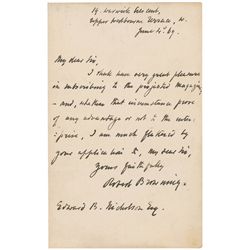 19. Warwick Crescent,
Upper Westbourne Terrace, W.
June 4. '67.
My dear Sir,
I shall have very great pleasure
in subscribing to the projected magazine
- and, whether that circumstance prove
of any advantage or not to the enter-
prise, I am much flattered by
your application to, my dear Sir,
Yours faithfully
Robert Browning.
Edward B. Nicholson Esq.